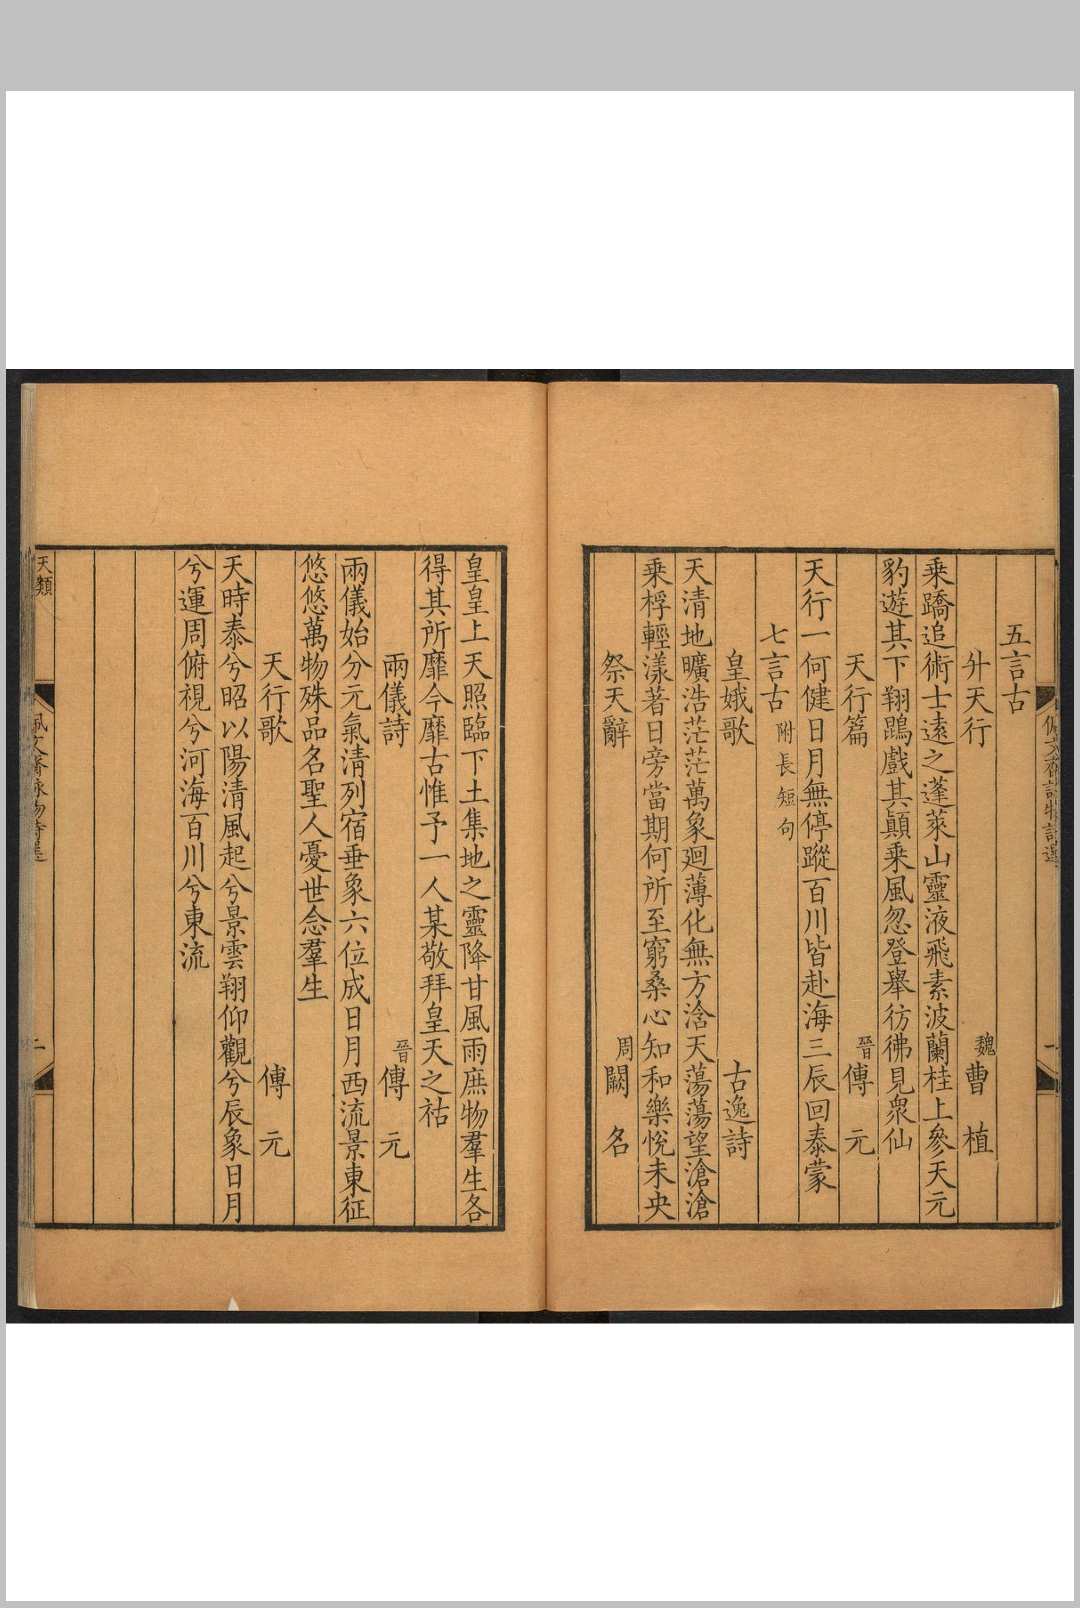 五言古
升天行　魏曹植
乘蹻追術士遠之蓬萊山靈液飛素波蘭桂上參天元
豹遊其下翔鵾戲其巔乘風忽登舉彷彿見衆仙
天行篇　晉傅元
天行一何健日月無停蹤百川皆赴海三辰回泰蒙
七言古附長短句
皇娥歌　古逸詩
天清地曠浩茫茫萬象廻薄化無方浛天蕩蕩望滄滄
乘桴輕漾著日旁當期何所至窮桑心知和樂悅未央
祭天辭　周闕名
皇皇上天照臨下土集地之靈降甘風雨庶物羣生各
得其所靡今靡古惟予一人某敬拜皇天之祜
兩儀詩　晉傅元
兩儀始分元氣清列宿垂象六位成日月西流景東征
悠悠萬物殊品名聖人憂世念羣生
天行歌　傅元
天時泰兮昭以陽清風起兮景雲翔仰觀兮辰象日月
兮運周俯視兮河海百川兮東流
天類
二